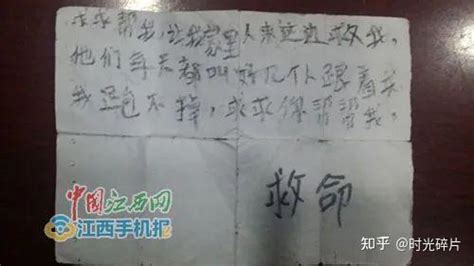 求求帮我,让我家里人来这边救我,
他们每天都叫好几个跟着我
我跑不掉,求求你帮帮我,
救命
中国江西网
江西手机报
知乎 @时光碎片